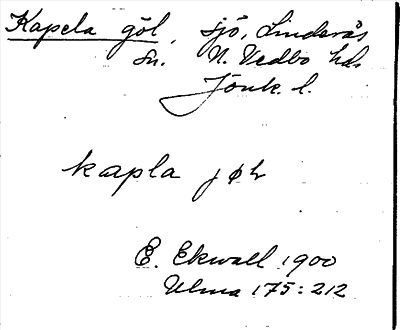 Kapela göl, sjö, Linderås
sn. N. Vedbo hds
Jönk. l.
kapla jøl
E. Ekwall 1900
Ulma 175:212